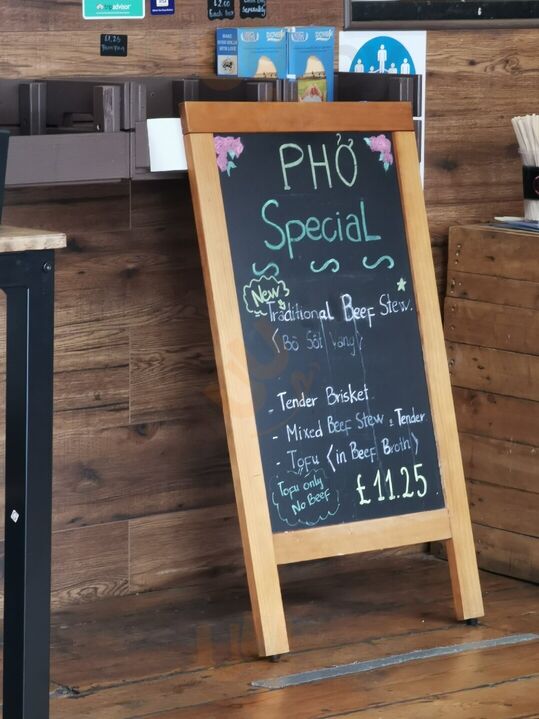 PHỞ
Special
New
Traditional Beef Stew.
(Bò Sốt Vang)
- Tender Brisket
- Mixed Beef Stew & Tender.
- Tofu (in Beef Broth)
Tofu only
No Beef
£11.25